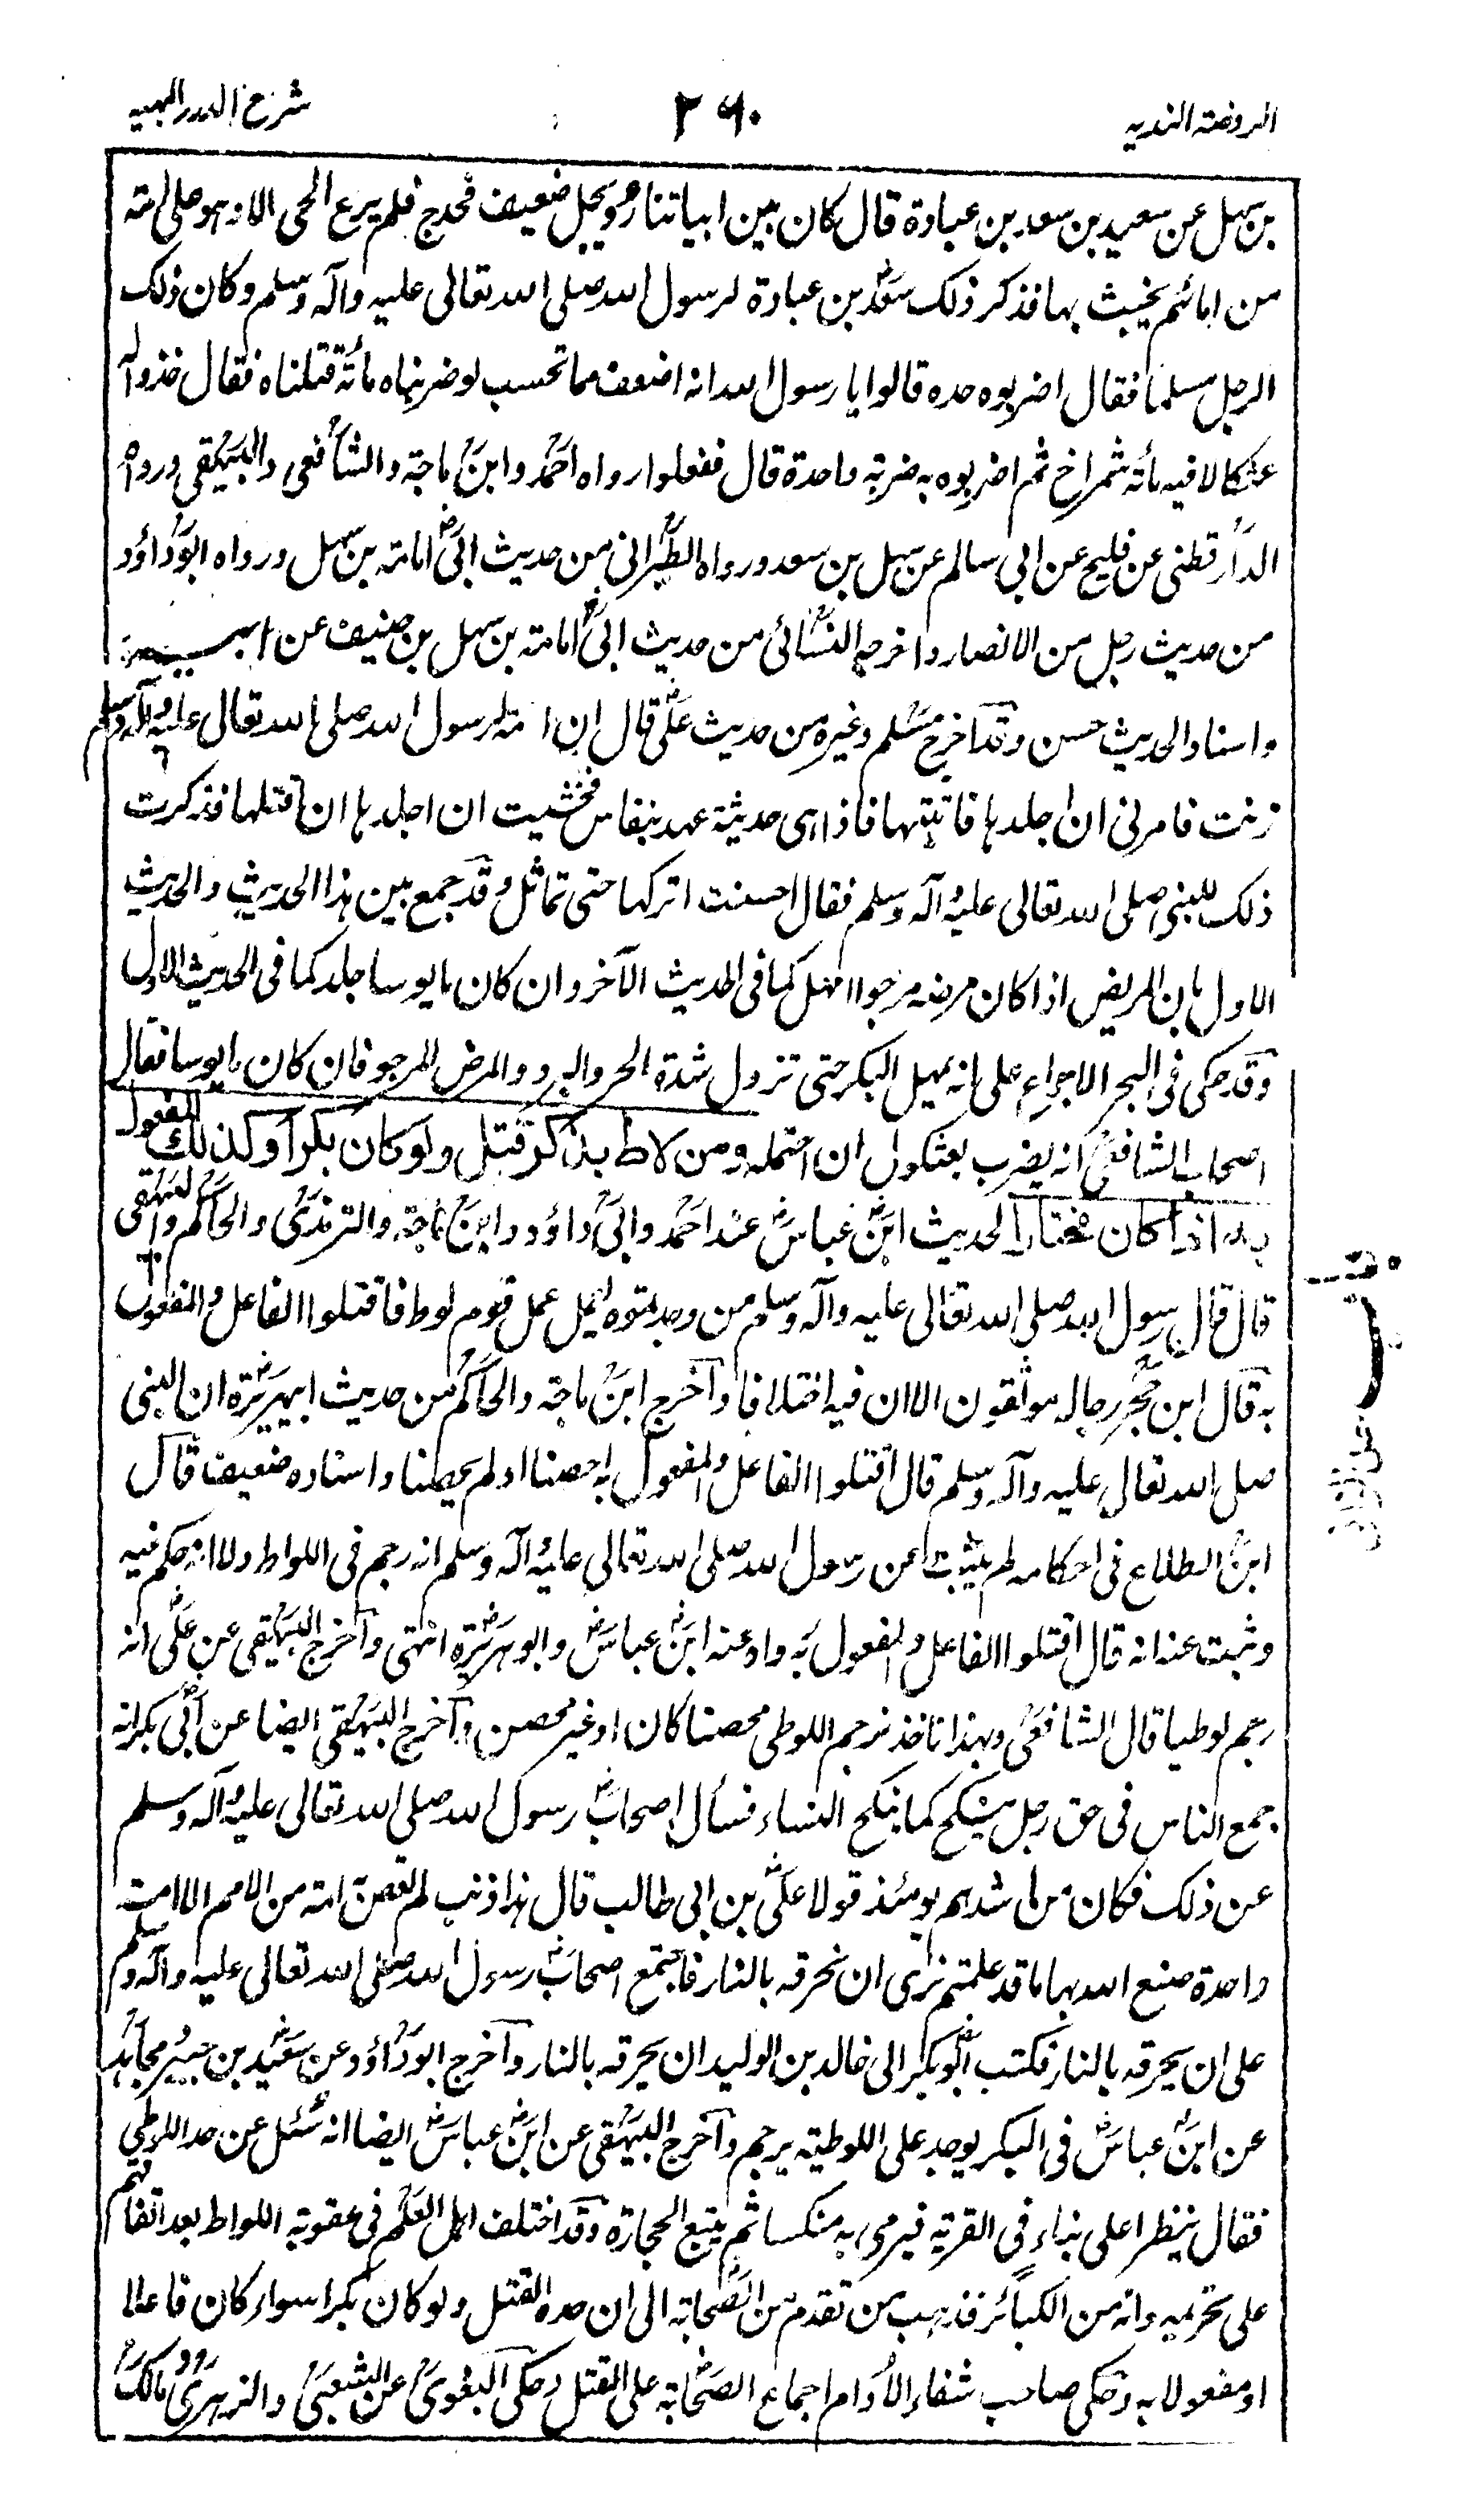 الروضة الندية
٢٦٠
شرح الدرر البهية
بن سهل عن سعيد بن سعد بن عبادة قال كان بين ابياتنا رويجل ضعيف مخدج فلم يرع الحى الا وهو على امة
من امائهم يخبث بها فذكر ذلك سعد بن عبادة لرسول الله صلى الله تعالى عليه وآله وسلم وكان ذلك
الرجل مسلما فقال اضربوه حده قالوا يا رسول الله انه اضعف مما تحسب لو ضربناه مأئة قتلناه فقال خذوا له
عثكالا فيه مأئة شمراخ ثم اضربوه به ضربة واحدة قال ففعلوا رواه احمد وابن ماجة والشافعى والبيهقى ورواه
الدارقطنى عن فليح عن ابى سالم عن سهل بن سعد ورواه الطبرانى من حديث ابى امامة بن سهل ورواه ابو داؤد
من حديث رجل من الانصار واخرجه النسائى من حديث ابى امامة بن سهل بن حنيف عن ابيه
واسناد الحديث حسن وقد اخرج مسلم وغيره من حديث على قال ان امة لرسول الله صلى الله تعالى عليه وآله وسلم
زنت فامرنى ان اجلدها فاتيتها فاذا هى حديثة عهد بنفاس فخشيت ان اجلدها ان اقتلها فذكرت
ذلك للنبى صلى الله تعالى عليه وآله وسلم فقال احسنت اتركها حتى تماثل وقد جمع بين هذا الحديث والحديث
الاول بان المريض اذا كان مرضه مرجوا امهل كما فى الحديث الآخر وان كان مايوسا جلد كما فى الحديث الاول
وقد حكى فى البحر الاجماع على انه يمهل البكر حتى تزول شدة الحر والبرد والمرض المرجو فان كان مايوسا فقال
اصحاب الشافعى انه يضرب بعثكول ان احتمله ومن لاط بذكر قتل ولو كان بكرا وكذلك المفعول
به اذا كان مختارا لحديث ابن عباس عند احمد وابى داؤد وابن ماجة والترمذى والحاكم والبيهقى
قال قال رسول الله صلى الله تعالى عليه وآله وسلم من وجدتموه يعمل عمل قوم لوط فاقتلوا الفاعل والمفعول
به قال ابن حجر رجاله موثقون الا ان فيه اختلافا وآخرج ابن ماجة والحاكم من حديث ابيهريرة ان النبى
صلى الله تعالى عليه وآله وسلم قال اقتلوا الفاعل والمفعول به احصنا او لم يحصنا واسناده ضعيف قال
ابن الطلاع فى احكامه لم يثبت عن رسول الله صلى الله تعالى عليه وآله وسلم انه رجم فى اللواط ولا انه حكم فيه
وثبت عنه انه قال اقتلوا الفاعل والمفعول به رواه عنه ابن عباس وابو هريرة انتهى وآخرج البيهقى عن على انه
رجم لوطيا قال الشافعى وبهذا ناخذ نرجم اللوطى محصنا كان او غير محصن وآخرج البيهقى ايضا عن ابى بكر انه
جمع الناس فى حق رجل ينكح كما ينكح النساء فسأل اصحاب رسول الله صلى الله تعالى عليه وآله وسلم
عن ذلك فكان من اشدهم يومئذ قولا على بن ابى طالب قال هذا ذنب لم تعص به امة من الامم الا امة
واحدة صنع الله بها ما قد علمتم نرى ان نحرقه بالنار فاجتمع اصحاب رسول الله صلى الله تعالى عليه وآله وسلم
على ان يحرقه بالنار فكتب ابو بكر الى خالد بن الوليد ان يحرقه بالنار وآخرج ابو داؤد عن سعيد بن جبير ومجاهد
عن ابن عباس فى البكر يوجد على اللوطية يرجم وآخرج البيهقى عن ابن عباس ايضا انه سئل عن حد اللوطى
فقال ينظر اعلى بناء فى القرية فيرمى به منكسا ثم يتبع الحجارة وقد اختلف اهل العلم فى عقوبة اللواط بعد اتفاقهم
على تحريمه وانه من الكبائر فذهب من تقدم من الصحابة الى ان حده القتل ولو كان بكرا سواء كان فاعلا
او مفعولا به وحكى صاحب شفاء الاوام اجماع الصحابة على القتل وحكى البغوى عن الشعبى والزهرى ومالك